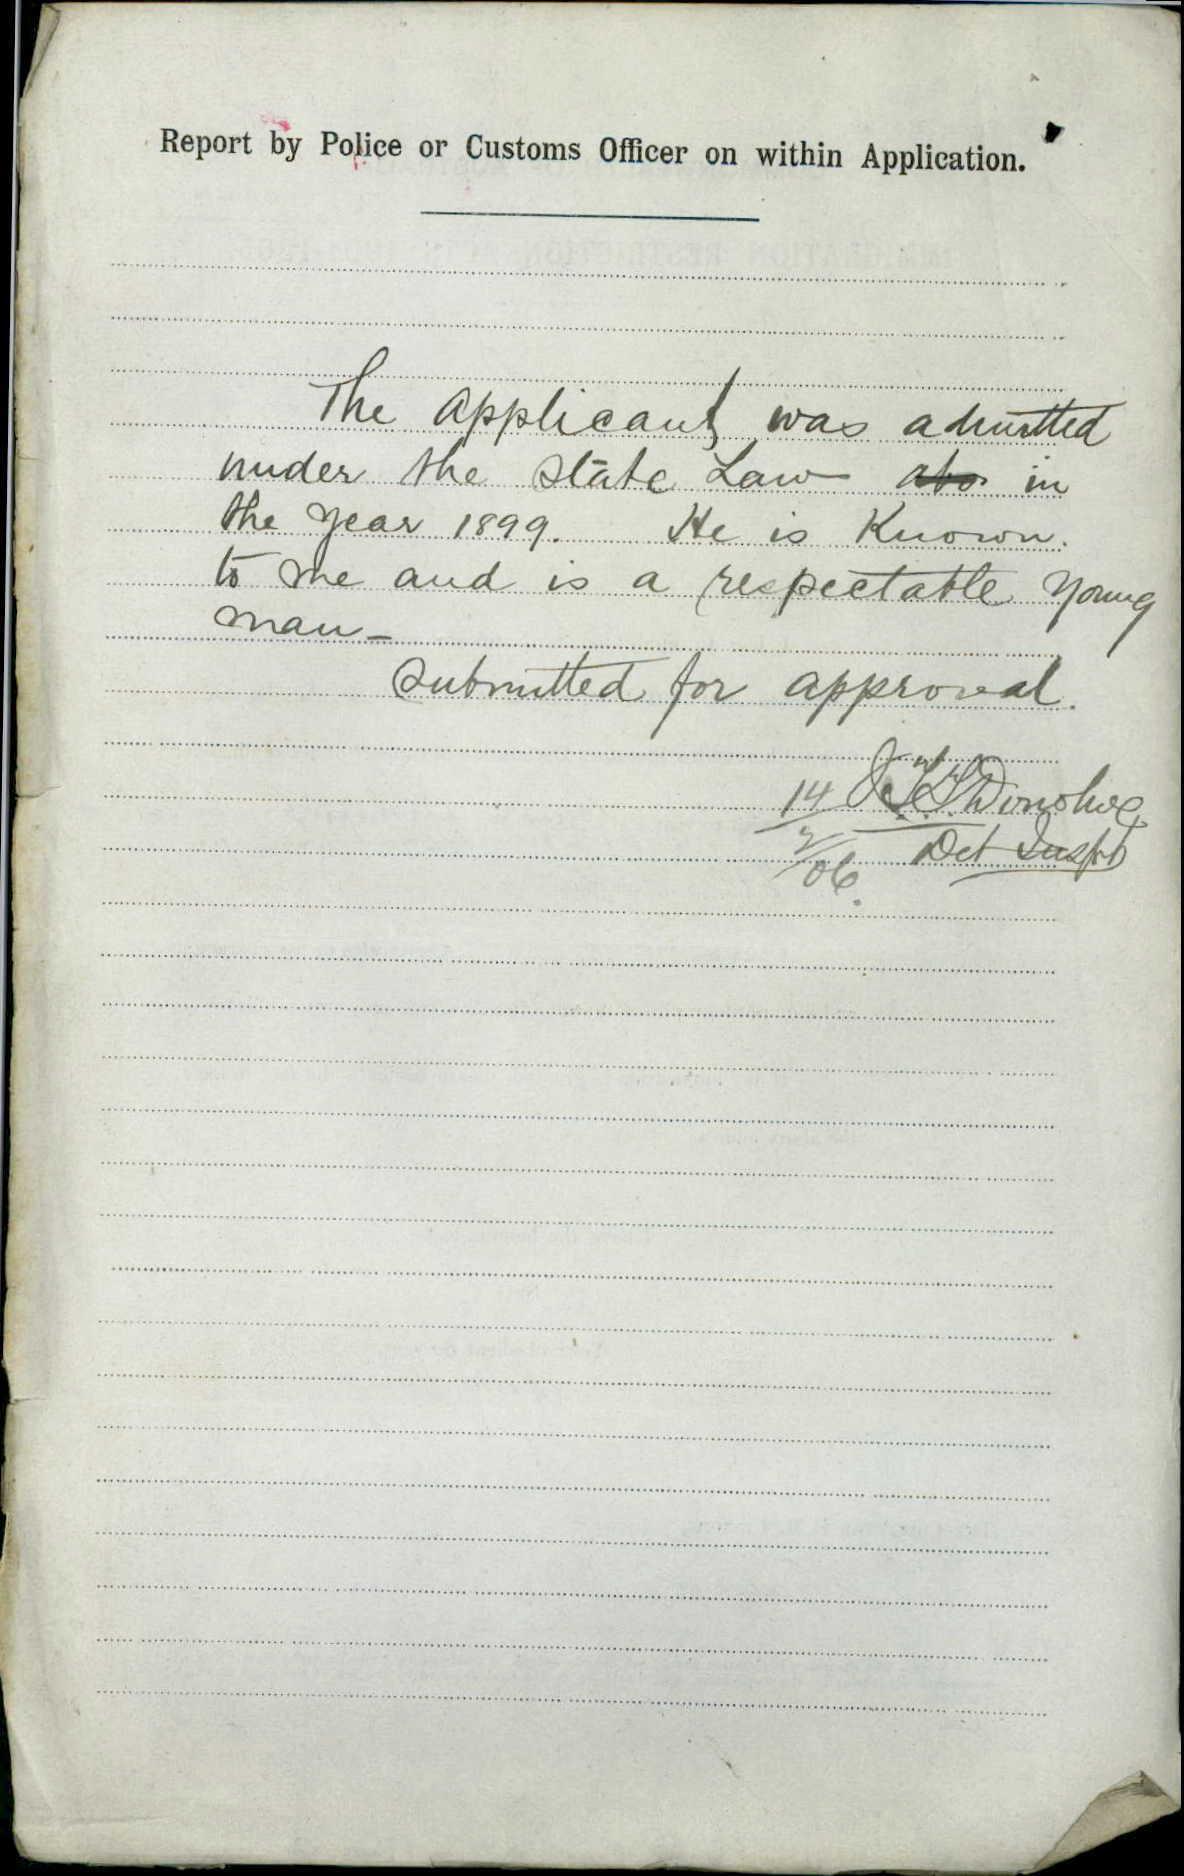 Report by Police or Customs Officer on within Application.
The Applicant was admitted
under the State Law in
the year 1899. He is Known.
to me and is a respectable young
man_
Submitted for approval.
14 Donohoe
Det Inspt
06.